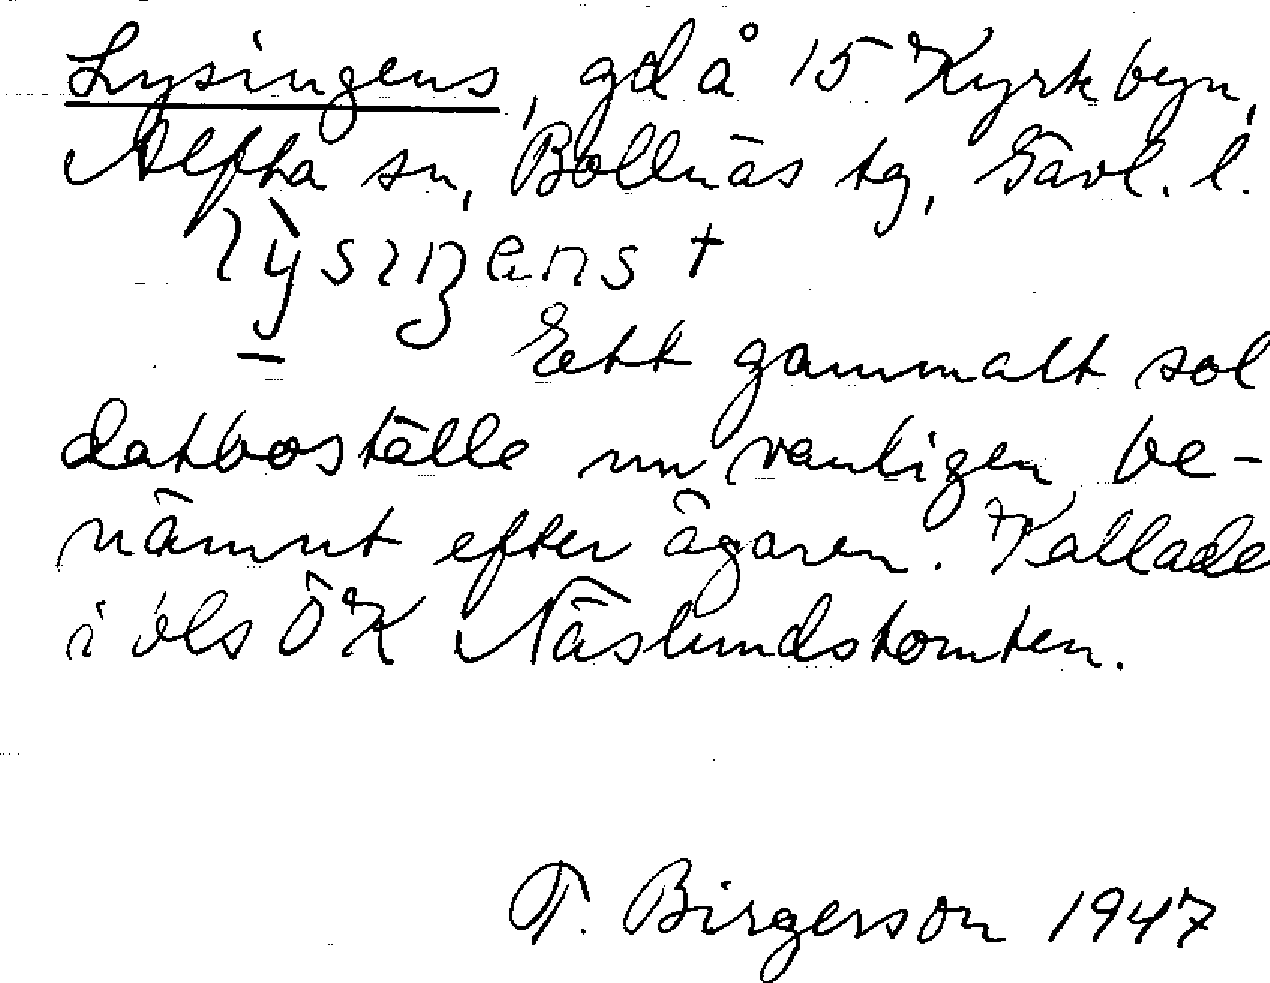 Lysingens, gd å 15 Kyrkbyn,
Alfta sn, Bollnäs tg, Gävl. l.
Ett gammalt sol
datboställe nu vanligen be-
nämnt efter ägaren. Kallade
i bls ÖK Näslundstomten.
T. Birgerson 1947